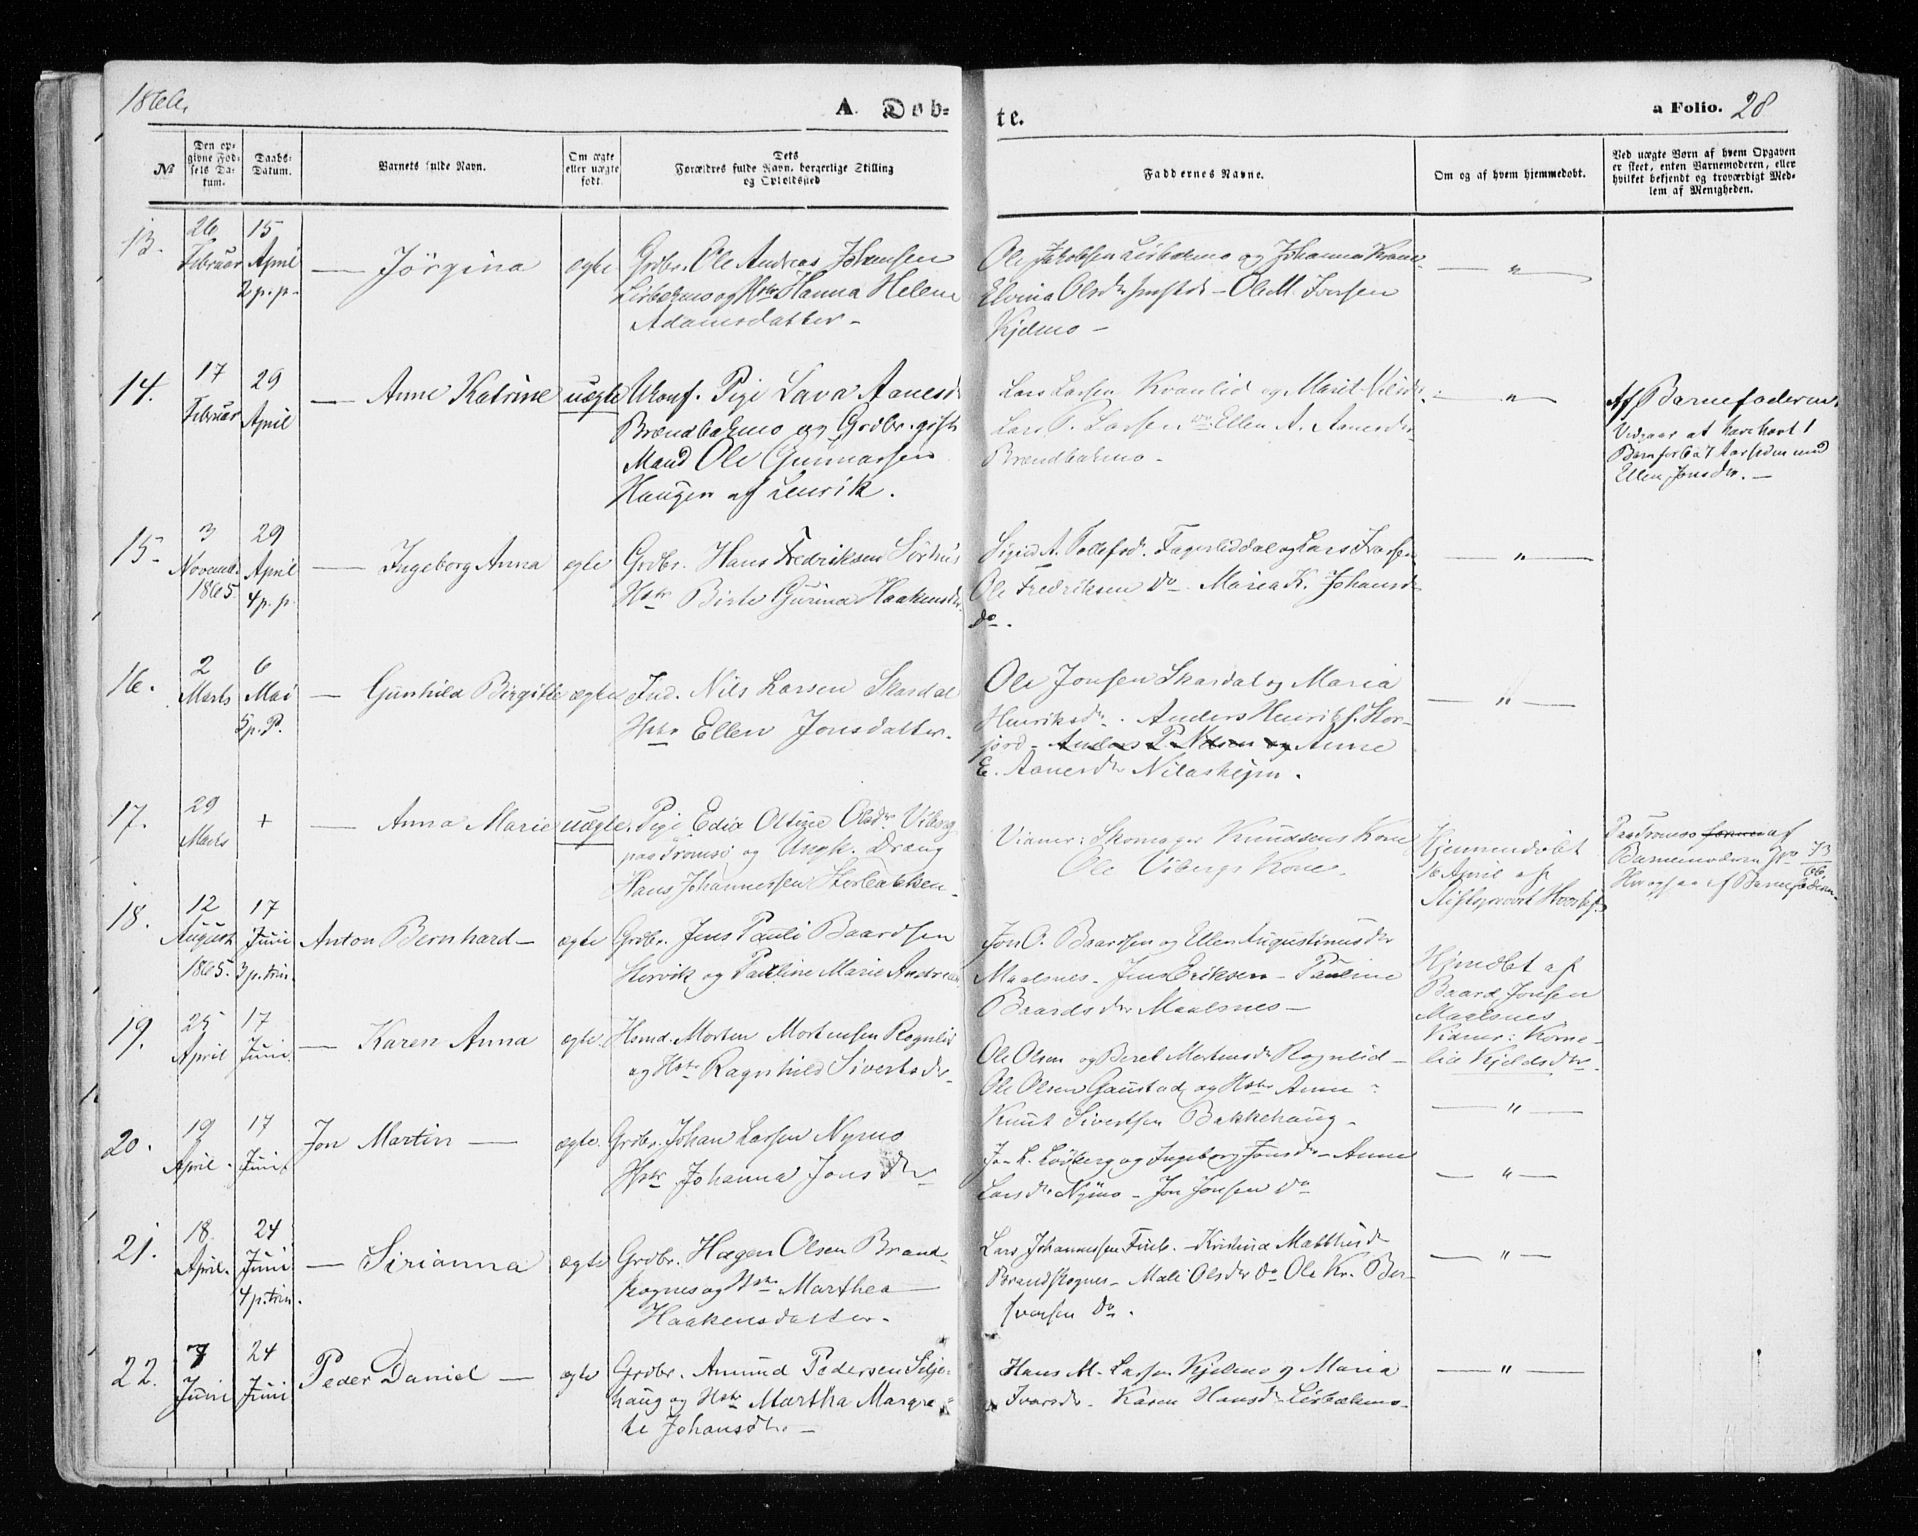 1866.
A. Døb-
te.
a Folio. 28
No
Den op-
givne Fød-
sels Da-
tum.
Daabs-
Datum.
Barnets fulde Navn.
Om ægte
eller uægte
født.
Dets
Forældres fulde Navn, borgerlige Stilling
og Opholdssted
Faddernes Navne.
Om og af hvem hjemmedøbt.
Ved uægte Børn af hvem Opgaven
er skeet, enten Barnemoderen, eller
hvilket bekjendt og troværdigt Med-
lem af Menigheden.
13.
26
Februar
15
April
2 p. p.
— Jørgina
ægte
Grdbr. Ole Andreas Johansen
og Hstr Hanna Helene
Adamsdatter –
Ole Jakobsen og Johanna Kone
Elvina Olsdr – Ole M. Iversen
Kjelmo –
— " —
14.
17
Februar
29
April
— Anne Katrine
uægte
Ukonf. Pige Lava Aanesdr
Brændbakmo og Grdbr. gift
Mand Ole Gunnarsen
Haugen af Lenvik.
Lars Larsen Kvanlid og Marit
Lars P. Larsen do Ellen A. Aanesdr
Brændbakmo –
— " —
Af Barnefaderen
Vedgaar at have havt 1
Barn for 6 a 7 Aar siden med
Ellen Jonsdr. –
15.
3
Novemb.
1865.
29
April
4 p. p.
— Ingeborg Anna
ægte
Grdbr. Hans Fredriksen
Hstr Birte Gurina Haakensdr.
Sigrid A. Tollefsd. Fagerliddal og Lars Ivarsen
Ole Fredriksen do – Maria K. Johansdr
do.
— " —
16.
2
Marts
6
Mai
5 p. P.
— Gunhild Birgitte
ægte
Ind. Nils Larsen Skardal
Hstr Ellen Jonsdatter.
Ole Jonsen Skardal og Maria
Henriksdr. Anders Henriks. Stor-
jord – Anders P. Nilsen og Anne
E. Aanesdr
— " —
17.
29
Marts
+
— Anna Marie
uægte.
Pige Edia Oltine Olsdr Viberg
paa Tromsø og Ungk. Dræng
Hans Johannessen
Vidner: Skomager Knudsens Kone
Ole Vibergs Kone.
Hjemmedøbt
16 April af
Paa Tromsø af
Barnemoderen
af Barnefaderen
18.
12
August
1865.
17
Juni
3 p. trin.
Anton Bernhard –
ægte
Grdbr. Jens Pauli Baardsen
og Pauline Marie
Jon O. Baardsen og Ellen Augustinusdr
Maalsnes – Jens Eriksen – Pauline
Baardsdr Maalsnes –
Hjmdbt af
Baard Jonsen
Maalsnes
Vidner: Korne-
lia Kjeldsdr.
19.
25
April
17
Juni
— Karen Anna
ægte.
Hsmd. Morten Mortensen Rognlid
og Hstr Ragnhild Sivertsdr.
Ole Olsen og Beret Mortensdr Rognlid –
Ole Olsen Gaustad og Hstr Anne
Knut Sivertsen Bakkehaug –
— " —
20.
19
April.
17
Juni
Jon Martin —
ægte.
Grdbr. Johan Larsen Nymo
Hstr Johanna Jonsdr
Jo L. Lødberg og Ingeborg Jonsdr – Anne
Larsdr Nymo – Jon Jonsen do
— " —
21.
18.
April.
24
Juni
4 p. trin.
— Sirianna
ægte
Grdbr. Hagen Olsen Brand-
skognes og Hstr Marthea —
Haakensdatter.
Lars Johannessen – Kristina Matthisdr
Brandskognes – Mali Olsdr do Ole Kr. Ber-
do.
— " —
22.
7
Juni
24
Juni
Peder Daniel —
ægte
Grdbr. Amund Pedersen Silje-
haug og Hstr Martha Margre-
te Johansdr. —
Hans M. Larsen Kjelmo og Maria
Ivarsdr – Karen Hansdr
— " —